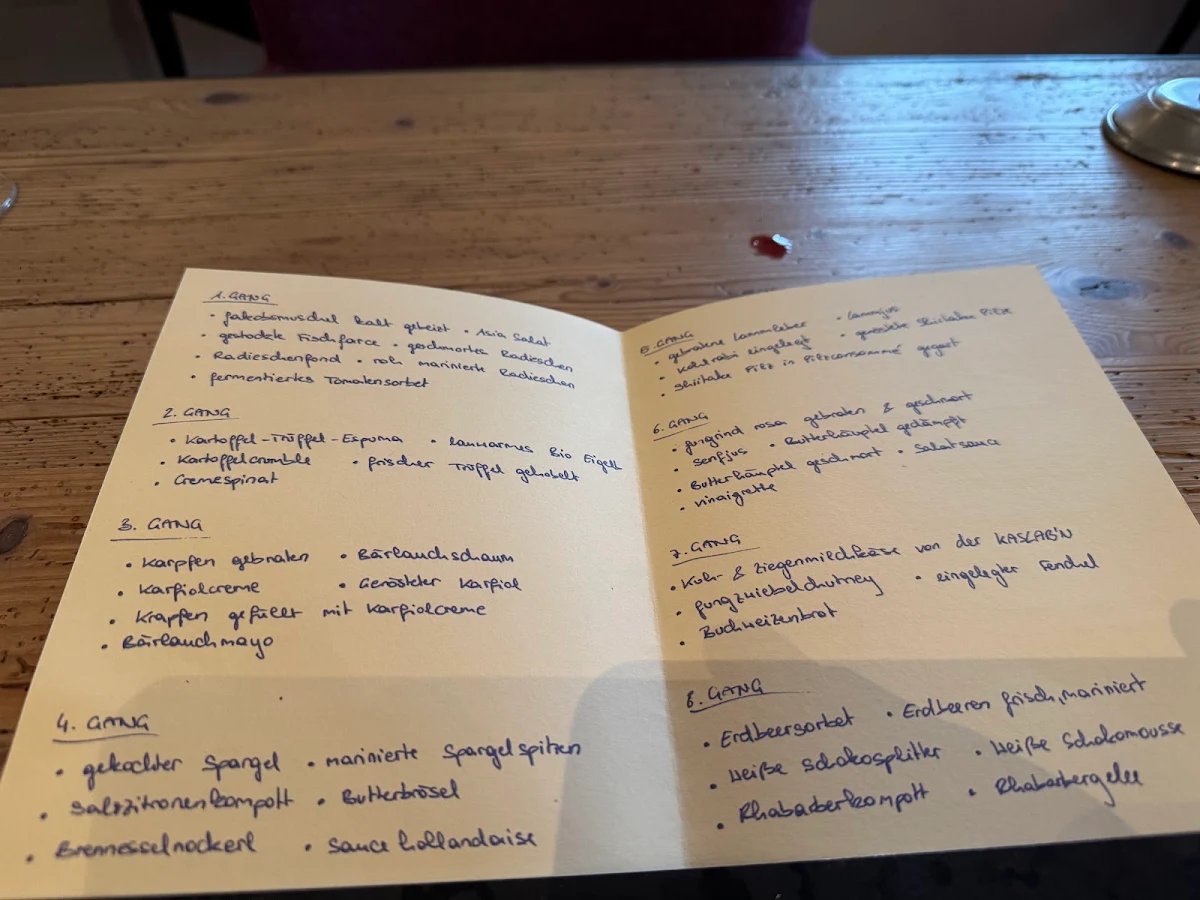 1. GANG
• Jakobsmuschel kalt gebeizt • Asia Salat
• gestockte Fischfarce • geschmorte Radieschen
• Radieschenfond • roh marinierte Radieschen
• fermentiertes Tomatensorbet
2. GANG
• Kartoffel-Trüffel-Espuma • lauwarmes Bio Eigelb
• Kartoffelcrumble • frischer Trüffel gehobelt
• Cremespinat
3. GANG
• Karpfen gebraten • Bärlauchschaum
• Karfiolcreme • Gerösteter Karfiol
• Krapfen gefüllt mit Karfiolcreme
• Bärlauchmayo
4. GANG
• gekochter Spargel • marinierte Spargelspitzen
• Salzzitronenkompott • Butterbrösel
• Brennesselnockerl • Sauce hollandaise
5. GANG
• gebratene Lammleber • Lammjus
• Kohlrabi eingelegt • geröstete Shiitake Pilze
• Shiitake Pilz in Pilzconsommé gegart
6. GANG
• Jungrind rosa gebraten & geschmort
• Senfjus • Butterhäuptel gedämpft
• Butterhäuptel geschmort • Salatsauce
• Vinaigrette
7. GANG
• Kuh- & Ziegenmilchkäse von der KASLAB'N
• Jungzwiebelchutney • eingelegter Fenchel
• Buchweizenbrot
8. GANG
• Erdbeersorbet • Erdbeeren frisch, mariniert
• Weiße Schokosplitter • Weiße Schokomousse
• Rhabarberkompott • Rhabarbergelee